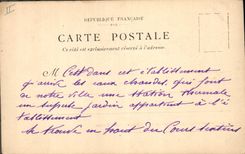 II
RÉPUBLIQUE FRANÇAISE
CARTE POSTALE
Ce côté est exclusivement réservé à l'adresse.
M C'est dans cet établissement
qu'arrive les eaux chaudes qui font
de notre ville une station thermale
un superbe jardin appartient à l'é
tablissement
se trouve en haut du Cours